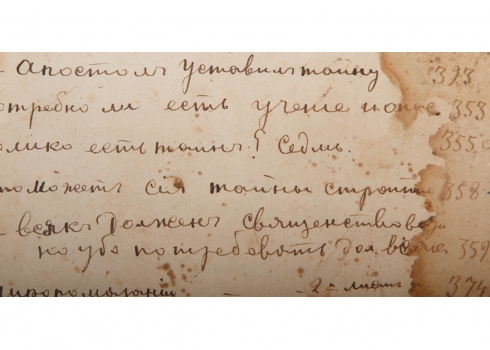 Апостолъ уставилъ тайну 393
отребно ли есть учете 353
олико есть тайнъ? Седмь. 355
может сія тайны строити 358
всякъ долженъ священствова
ко убо потребовать для 359
ѵропомазании - - 2 - листъ 374